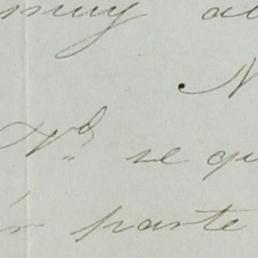 muy
N
Vd. se qu
r parte